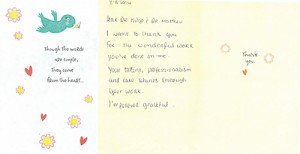 Though the words
are simple,
they come
from the heart...
I want to thank you
for the wonderful work
you've done on me
Your professionalism
and care shines through
your work.
I'm forever grateful.
Thank
you